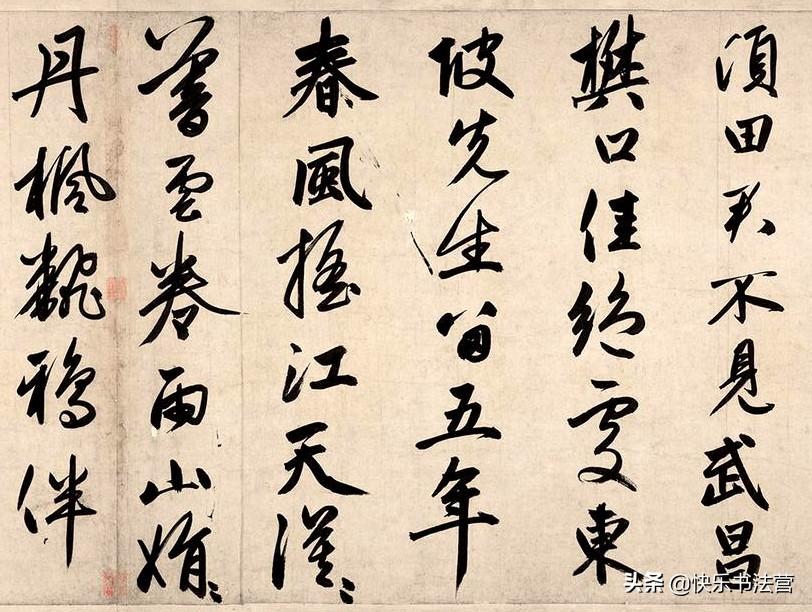 頃田君不見武昌
樊口佳絕處東
坡先生留五年
春風搖江天漠〻
暮雲卷雨山娟〻
丹楓飜鴉伴
头条 @快乐书法营